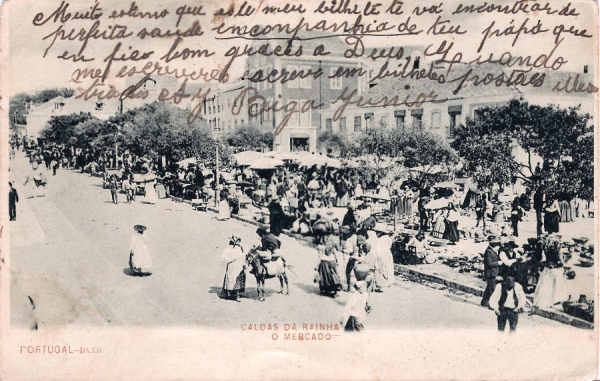 Muito estimo que este meu bilhete te vá encontrar de
perfeita saude em companhia de teu pápá que
eu fico bem graças a Deus. Quando
me escreveres escreve em bilhetes postaes illus-
trados Braga Junior
CALDAS DA RAINHA
O MERCADO
PORTUGAL